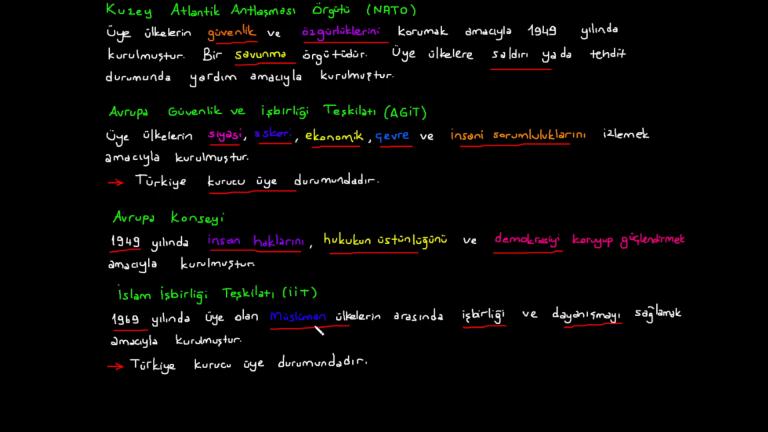 Kuzey Atlantik Antlaşması Örgütü (NATO)
Üye ülkelerin güvenlik ve özgürlüklerini korumak amacıyla 1949 yılında
kurulmuştur. Bir savunma örgütüdür. Üye ülkelere saldırı ya da tehdit
durumunda yardım amacıyla kurulmuştur.
Avrupa Güvenlik ve işbirliği Teşkilatı (AGİT)
Üye ülkelerin siyasi, askeri, ekonomik, çevre ve insani sorumluluklarını izlemek
amacıyla kurulmuştur.
→ Türkiye kurucu üye durumundadır.
Avrupa Konseyi
1949 yılında insan haklarını, hukukun üstünlüğünü ve demokrasiyi koruyup güçlendirmek
amacıyla kurulmuştur.
İslam İşbirliği Teşkilatı (İİT)
1969 yılında üye olan Müslüman ülkelerin arasında işbirliği ve dayanışmayı sağlamak
amacıyla kurulmuştur.
→ Türkiye kurucu üye durumundadır.